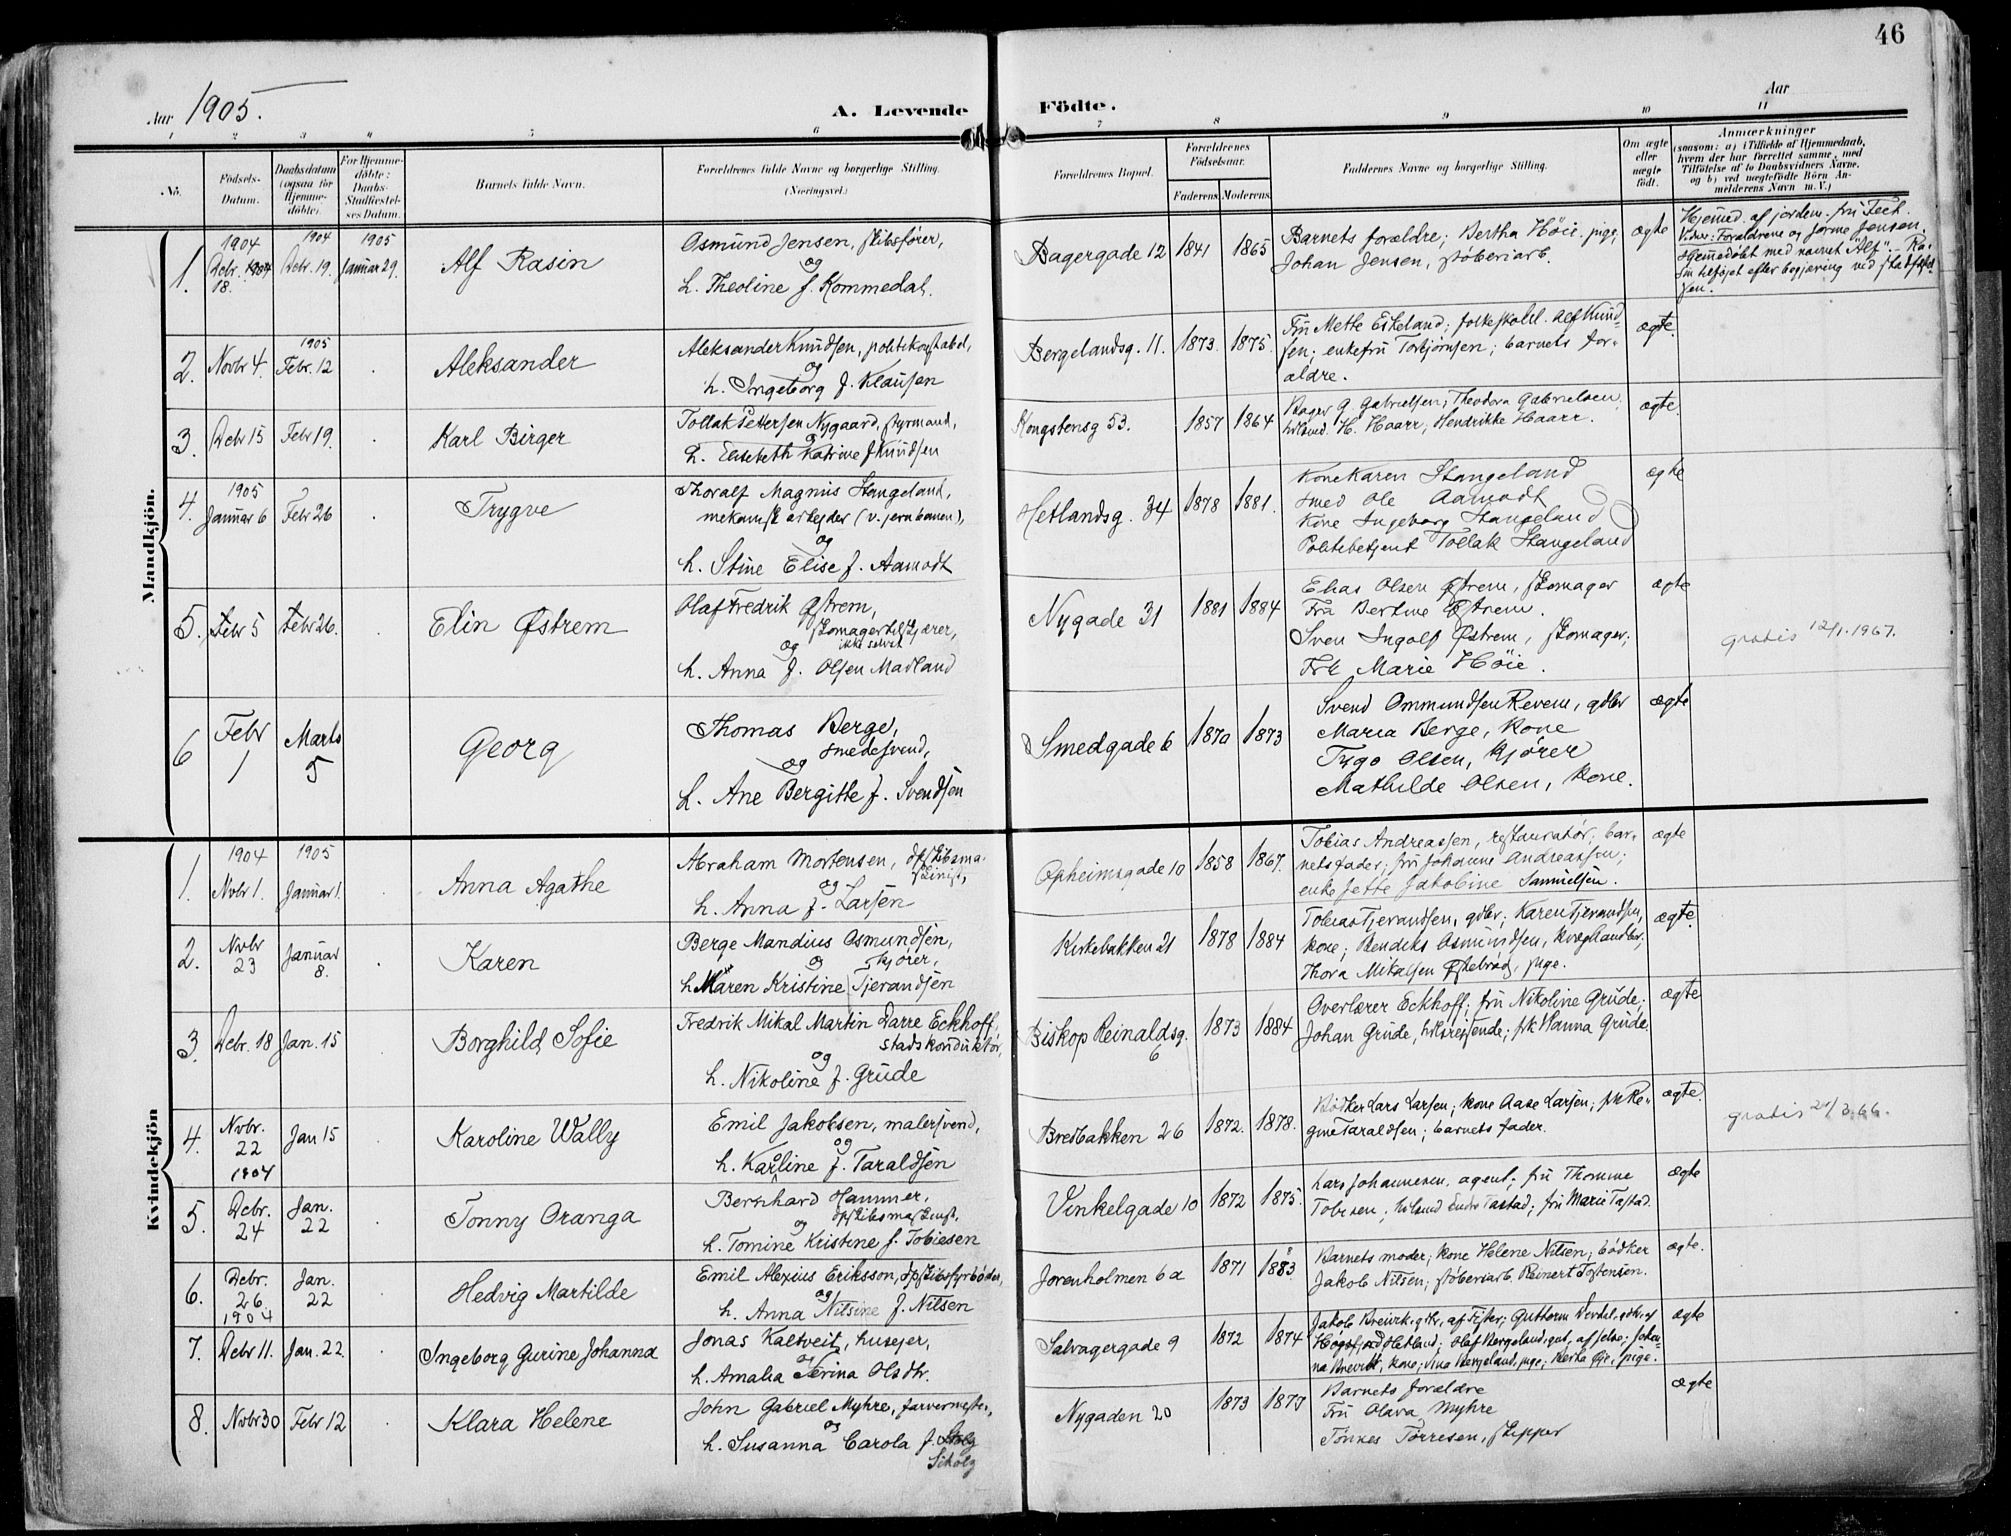 46
Aar 1905.
A. Levende Födte.
Aar
1 2 3 4 5 6 7 8 9 10 11
No.
Födsels-Datum.
Daabsdatum (ogsaa for Hjemme-döbte).
For Hjemme-döbte: Daabs-Stadfæstel-ses Datum.
Barnets fulde Navn.
Forældrenes fulde Navne og borgerlige Stilling. (Næringsvei.)
Forældrenes Bopæl.
Forældrenes Födselsaar.
Faderens. Moderens.
Faddernes Navne og borgerlige Stilling.
Om ægte eller uægte födt.
Anmærkninger
(saasom: a) i Tilfælde af Hjemmedaab, hvem der har forrettet samme, med Tilföielse af to Daabsvidners Navne, og b) ved uægtefödte Börn An-melderens Navn m. V.)
Mandkjön.
1. 1904 Decbr. 1904 18. 1904 Decbr. 19. 1905 Januar 29. Alf Rasin
Osmund Jensen, skibsfører,
og
h. Theoline f. Kommedal.
Bagergade 12 1841 1865
Barnets forældre; Bertha Höie, pige;
Johan Jensen, støberiarb.
ægte
Hjemmed. af jordem. fru Tech.
Vidner: Forældrene og Jorme Jensen.
Hjemmedøbt med navnet "Alf". Ra-
sin tilføjet efter begjæring ved stadfæstel-
sen.
2. Novbr 4. 1905 Febr. 12 . Aleksander
Aleksander Knudsen, politikonstabel,
og
h. Ingeborg f. Klausen
Bergelandsg. 11. 1873. 1875.
Fru Mette Eskeland; folkeskolel. Alf Knud-
sen; enkefru Torbjørnsen; barnets for-
ældre.
ægte.
3. Debr 15 Febr 19. . Karl Birger
Tollak Pettersen Nygaard, styrmand,
og
h. Elisebeth Katrine f. Knudsen
Kongstensg 53. 1857 1864
Bager G. Gabrielsen; Theodora Gabrielsen;
H. Haarr; Hendrikke Haarr.
ægte.
4. 1905 Januar 6 Febr 26 . Trygve
Thoralf Magnus Stangeland,
mekanisk arbejder (v. jernbanen),
og
h. Stine Elise f. Aamodt
Hetlandsg. 34 1878 1881.
Kone Karen Stangeland
smed Ole Aamodt
Kone Ingeborg Stangeland
Politibetjent Tollak Stangeland
ægte
5. Febr 5 Febr 26. Elin Østrem
Olaf Fredrik Østrem,
skomagertilskjærer,
ikke selvst
og
h. Anna f. Olsen Madland
Nygade 31 1881 1884
Elias Olsen Østrem, skomager
Fru Bertine Østrem.
Sven Ingolf Østrem, skomager;
Frk Marie Höie.
ægte
gratis 12/1.1967.
6 Febr 1 Marts 5 Georg
Thomas Berge,
smedesvend,
og
h. Ane Bergitte f. Svendsen
Smedgade 6 1870 1873
Svend Ommundsen Revem, gdbr
Maria Berge, kone
Tygo Olsen, kjörer
Mathilde Olsen, kone.
ægte
Kvindekjön
1. 1904 Novbr 1. 1905 Januar 1. Anna Agathe
Abraham Mortensen, dpskibsma-
skinist,
og
h. Anna f. Larsen
Opheimsgade 10 1858 1867.
Tobias Andreassen, restauratør; bar-
nets fader; fru Johanne Andreassen;
enke Jette Jakobine Samuelsen.
ægte
2. Novbr 23 Januar 8. . Karen
Berge Mandius Osmundsen,
og kjører,
h. Maren Kristine Tjerandsen
Kirkebakken 21 1878 1884
Tobias Tjerandsen, gdbr; Karen Tjerandsen,
kone; Rendiks Osmundsen, kvæghandler;
Thora Mikalsen Østebrød, pige.
ægte.
3. Debr. 18 Jan. 15 Borghild Sofie
Fredrik Mikal Martin Darre Eckhoff,
stadskonduktör,
og
h. Nikoline f. Grude
Biskop Reinaldsg. 6 1873 1884
Overlærer Eckhoff; fru Nikoline Grude;
Johan Grude, hdlsrejsende; frk Hanna Grude.
ægte
4. Novbr. 22 1904 Jan 15 . Karoline Wally
Emil Jakobsen, malersvend,
og
h. Karoline f. Taraldsen
Bredbakken 26 1872. 1878.
Bødker Lars Larsen; kone Aase Larsen; frk Re-
gine Taraldsen; barnets fader.
ægte.
gratis 24/2.66.
5. Decbr. 24 Jan. 22 . Tonny Oranga
Bernhard Hammer,
dpskibsmaskinist,
og
h. Tomine Kristine f. Tobiesen
Vinkelgade 10 1872 1875.
Lars Johannesen, agent; fru Thomine
Tobisen; Endre Tastad; fru Marie Tastad.
ægte
6. Debr. 26 1904 Jan. 22 . Hedvig Martilde
Emil Alexius Eriksson, dpskibsfyrbøder,
og
h. Anna Nilsine f. Nilsen
Jorenholmen 6a 1871 1883
Barnets moder; kone Helene Nilsen; bødker
Jakob Nilsen; støberiarb. Reinert Tostensen.
ægte.
7. Debr 11. Jan. 22. . Ingeborg Gurine Johanna
Jonas Kaltveit, husejer,
og
h. Amalia Serina Olsdtr.
Salvagergade 9 1872 1874
Jakob Breivik, gdbr, af Fister; Guttorm
Høgsfjord Hetland; Olaf Bergeland, gut, af Jelse; Johan-
na Breivik, kone; Bergeland, pige; Berta Øje, pige.
ægte
8. Novbr 30 Febr 12 . Klara Helene
John Gabriel Myhre, farvermester,
og
h. Susanna Carola f.
Schølg
Nygaden 20 1873 1877
Barnets forældre
Fru Olava Myhre
Tønnes Tørresen, skipper
ægte